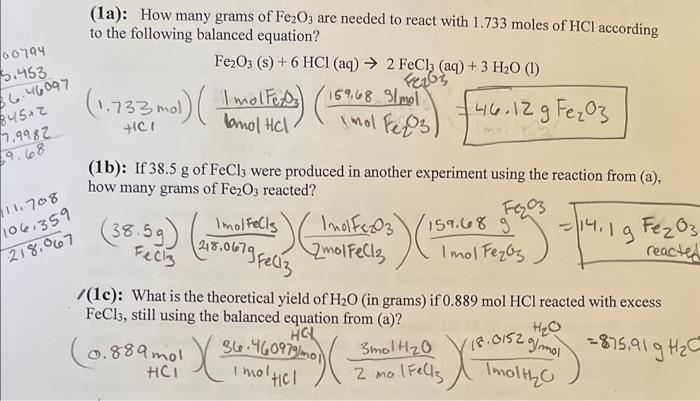 (1a): How many grams of Fe₂O₃ are needed to react with 1.733 moles of HCl according
to the following balanced equation?
Fe₂O₃ (s) + 6 HCl (aq) → 2 FeCl₃ (aq) + 3 H₂O (l)
00794
5.453
36.46097
845×2
7.9982
59.68
(1.733 mol HCl) (1 mol Fe₂O₃ / 6 mol HCl) (159.68 g/mol Fe₂O₃ / 1 mol Fe₂O₃) = 46.12 g Fe₂O₃
(1b): If 38.5 g of FeCl₃ were produced in another experiment using the reaction from (a),
how many grams of Fe₂O₃ reacted?
111.708
106.359
218.067
(38.5g FeCl₃) (1 mol FeCl₃ / 218.067g FeCl₃) (1 mol Fe₂O₃ / 2 mol FeCl₃) (159.68 g Fe₂O₃ / 1 mol Fe₂O₃) = 14.1 g Fe₂O₃ reacted
(1c): What is the theoretical yield of H₂O (in grams) if 0.889 mol HCl reacted with excess
FeCl₃, still using the balanced equation from (a)?
(0.889 mol HCl) (36.46097g/mol HCl / 1 mol HCl) (3 mol H₂O / 2 mol FeCl₃) (18.0152 g/mol H₂O / 1 mol H₂O) = 875.91 g H₂O